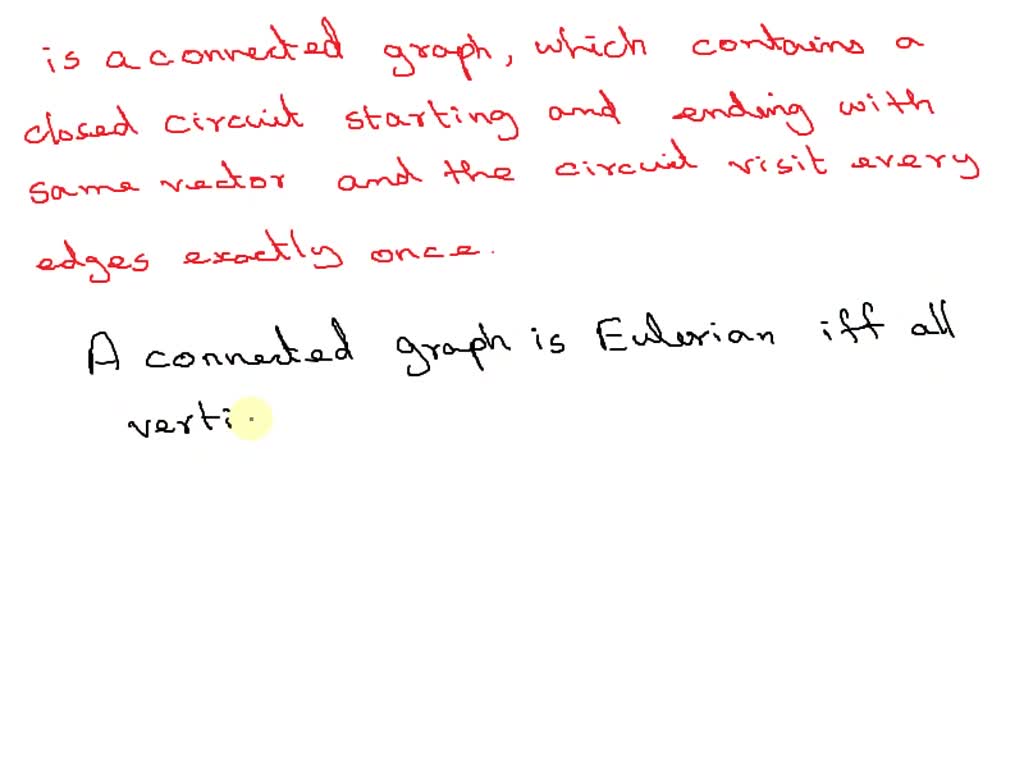 is a connected graph, which contains a
closed circuit starting and ending with
same vector and the circuit visit every
edges exactly once.
A connected graph is Eulerian iff all
verti